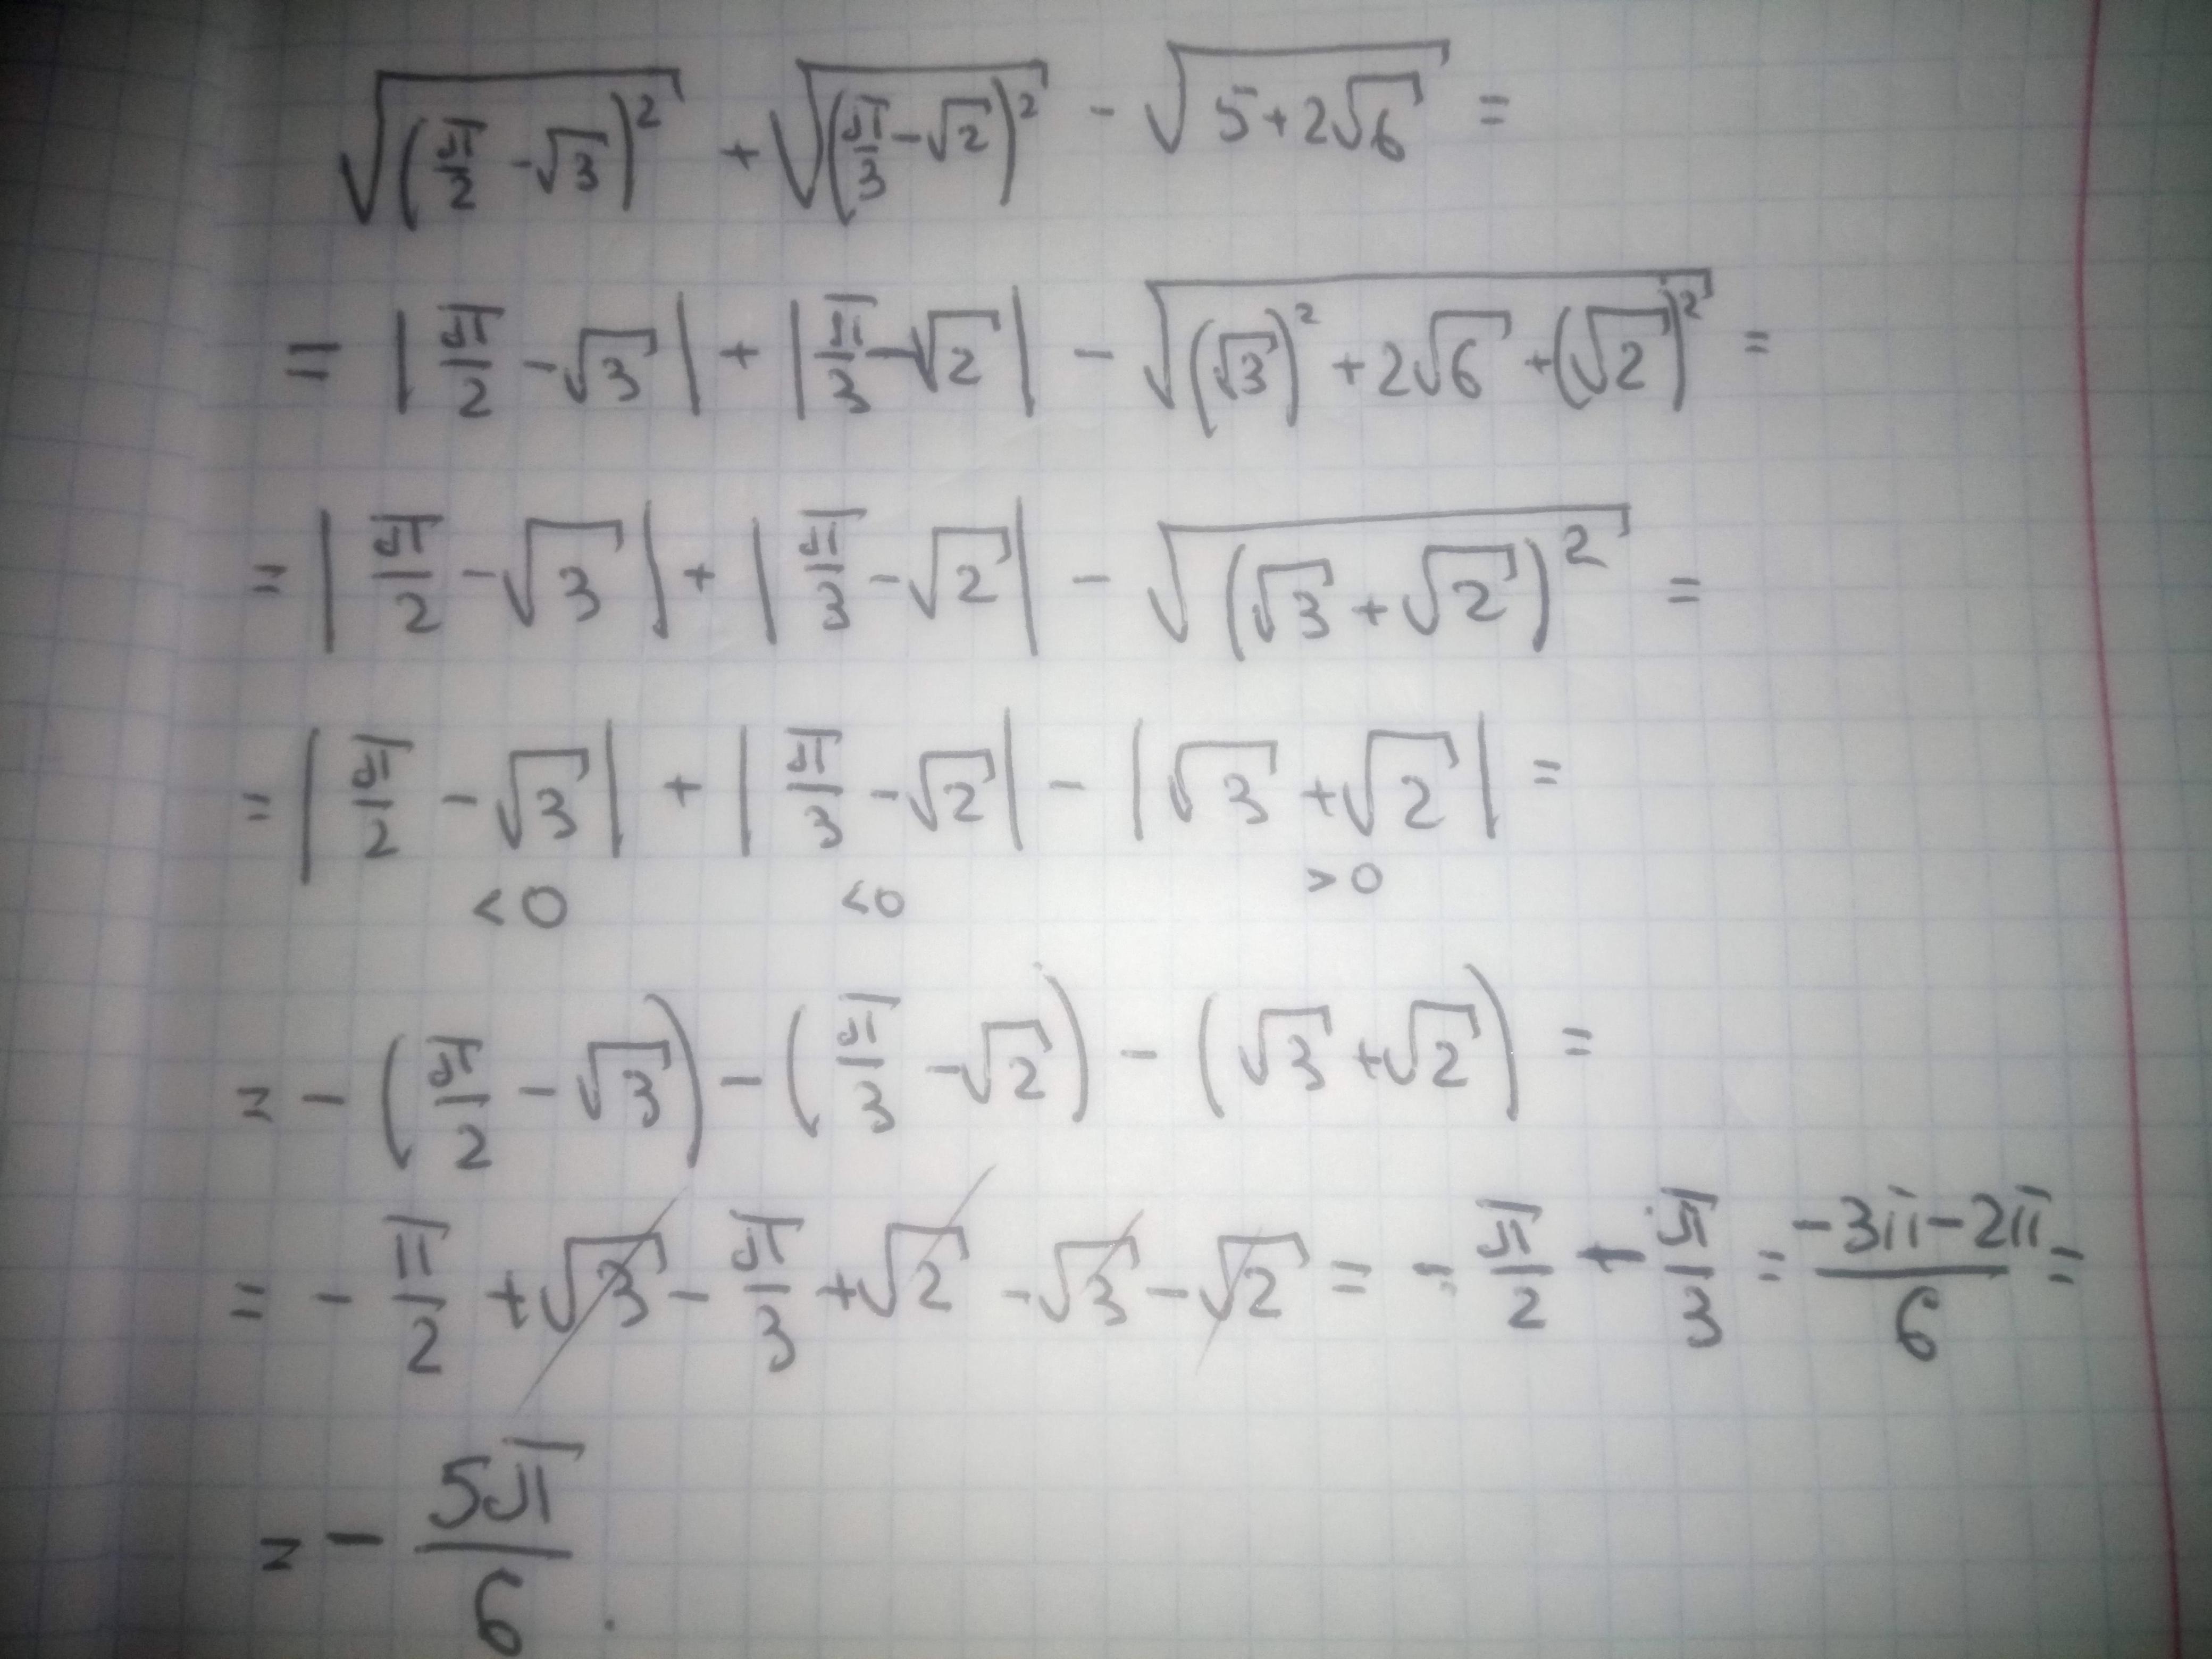 √((π/2 - √3)²) + √((π/3 - √2)²) - √(5 + 2√6) =
= |π/2 - √3| + |π/3 - √2| - √((√3)² + 2√6 + (√2)²) =
= |π/2 - √3| + |π/3 - √2| - √((√3 + √2)²) =
= |π/2 - √3| + |π/3 - √2| - |√3 + √2| =
<0 <0 >0
= - (π/2 - √3) - (π/3 - √2) - (√3 + √2) =
= - π/2 + √3 - π/3 + √2 - √3 - √2 = - π/2 - π/3 = (-3π - 2π)/6 =
= - 5π/6 .